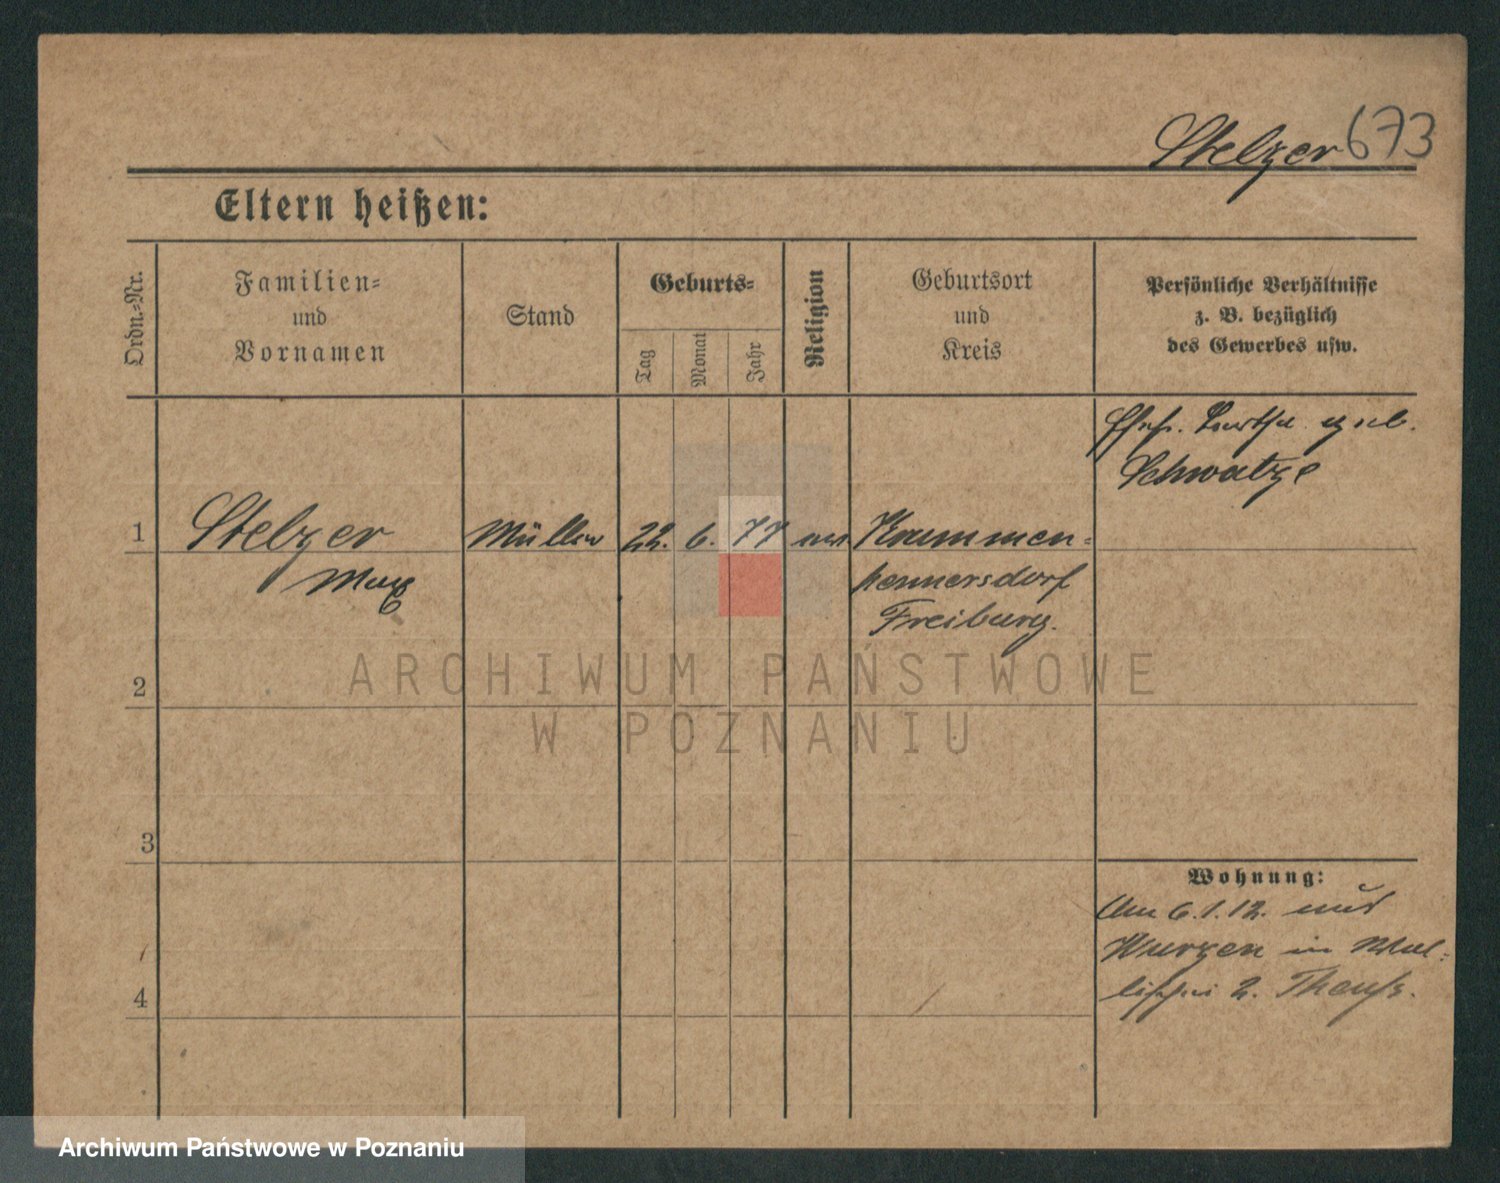 Stelzer 673
Eltern heißen:
Ordn.-Nr.
Familien-
und
Vornamen
Stand
Geburts-
Tag
Monat
Jahr
Religion
Geburtsort
und
Kreis
Persönliche Verhältnisse
z. B. bezüglich
des Gewerbes usw.
Ehefr. geb.
Schwatze
1
Stelzer
Max
Müller
22.
6.
77
Krummen-
hennersdorf
Freiburg.
2
ARCHIWUM PAŃSTWOWE
W POZNANIU
3
Wohnung:
Am 6.1.12.
Wurzen in
4
2.
Archiwum Państwowe w Poznaniu